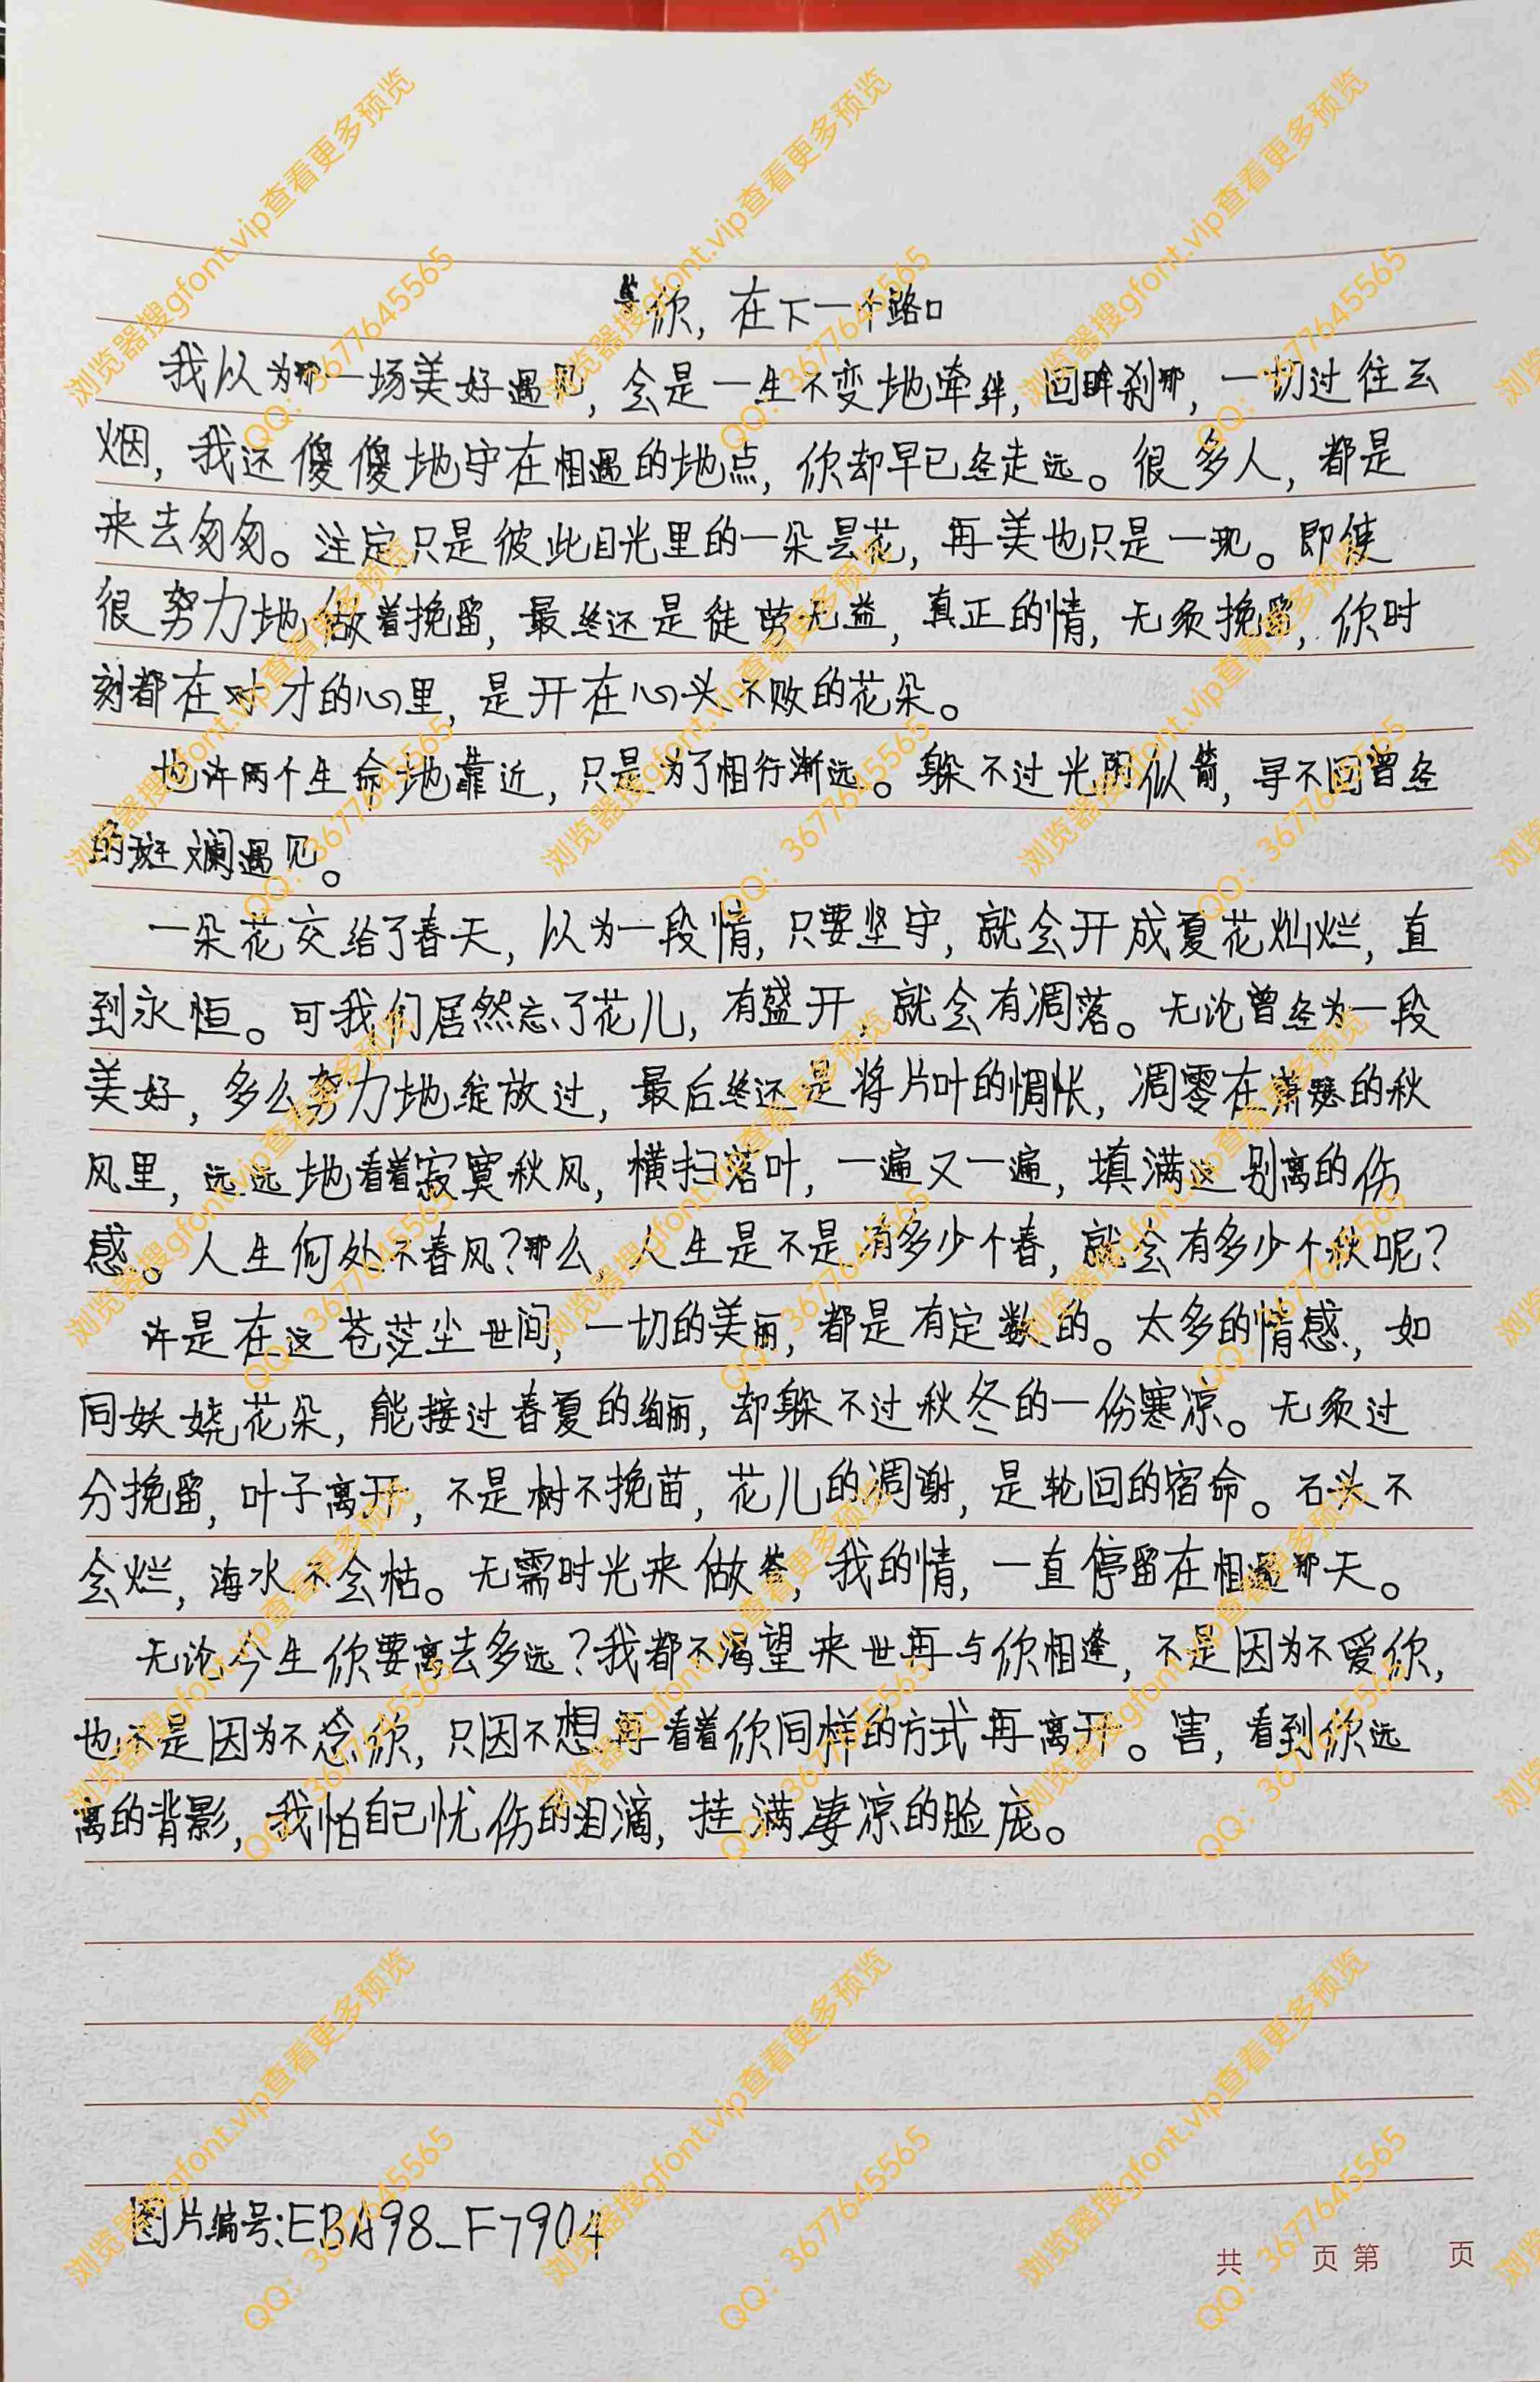 等你,在下一个路口
我以为那一场美好遇见,会是一生不变地牵绊,回眸刹那,一切过往云
烟,我还傻傻地守在相遇的地点,你却早已经走远。很多人,都是
来去匆匆。注定只是彼此目光里的一朵昙花,再美也只是一现。即使
很努力地做着挽留,最终还是徒劳无益,真正的情,无须挽留,你时
刻都在对才的心里,是开在心头不败的花朵。
也许两个生命地靠近,只是为了相行渐远。躲不过光阴似箭,寻不回曾经
的斑斓遇见。
一朵花交给了春天,以为一段情,只要坚守,就会开成夏花灿烂,直
到永恒。可我们居然忘了花儿,有盛开,就会有凋落。无论曾经为一段
美好,多么努力地绽放过,最后终还是将片叶的惆怅,凋零在萧瑟的秋
风里,远远地看着寂寞秋风,横扫落叶,一遍又一遍,填满这别离的伤
感。人生何处不春风?那么,人生是不是有多少个春,就会有多少个秋呢?
许是在这苍茫尘世间,一切的美丽,都是有定数的。太多的情感,如
同妖娆花朵,能接过春夏的绚丽,却躲不过秋冬的一份寒凉。无须过
分挽留,叶子离开,不是树不挽苗,花儿的凋谢,是轮回的宿命。石头不
会烂,海水不会枯。无需时光来做答,我的情,一直停留在相遇那天。
无论今生你要离去多远?我都不渴望来世再与你相逢,不是因为不爱你,
也不是因为不念你,只因不想再看着你同样的方式再离开。害,看到你远
离的背影,我怕自己忧伤的泪滴,挂满凄凉的脸庞。
图片编号:EBA98_F7904
共 页 第 页
浏览器搜gfont.vip查看更多预览
QQ:3677645565